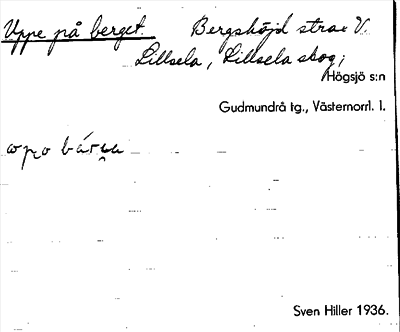 Uppe på berget. Bergshöjd strax V.
Lillsela, Lillsela skog;
Högsjö s:n
Gudmundrå tg., Västernorrl. l.
Sven Hiller 1936.